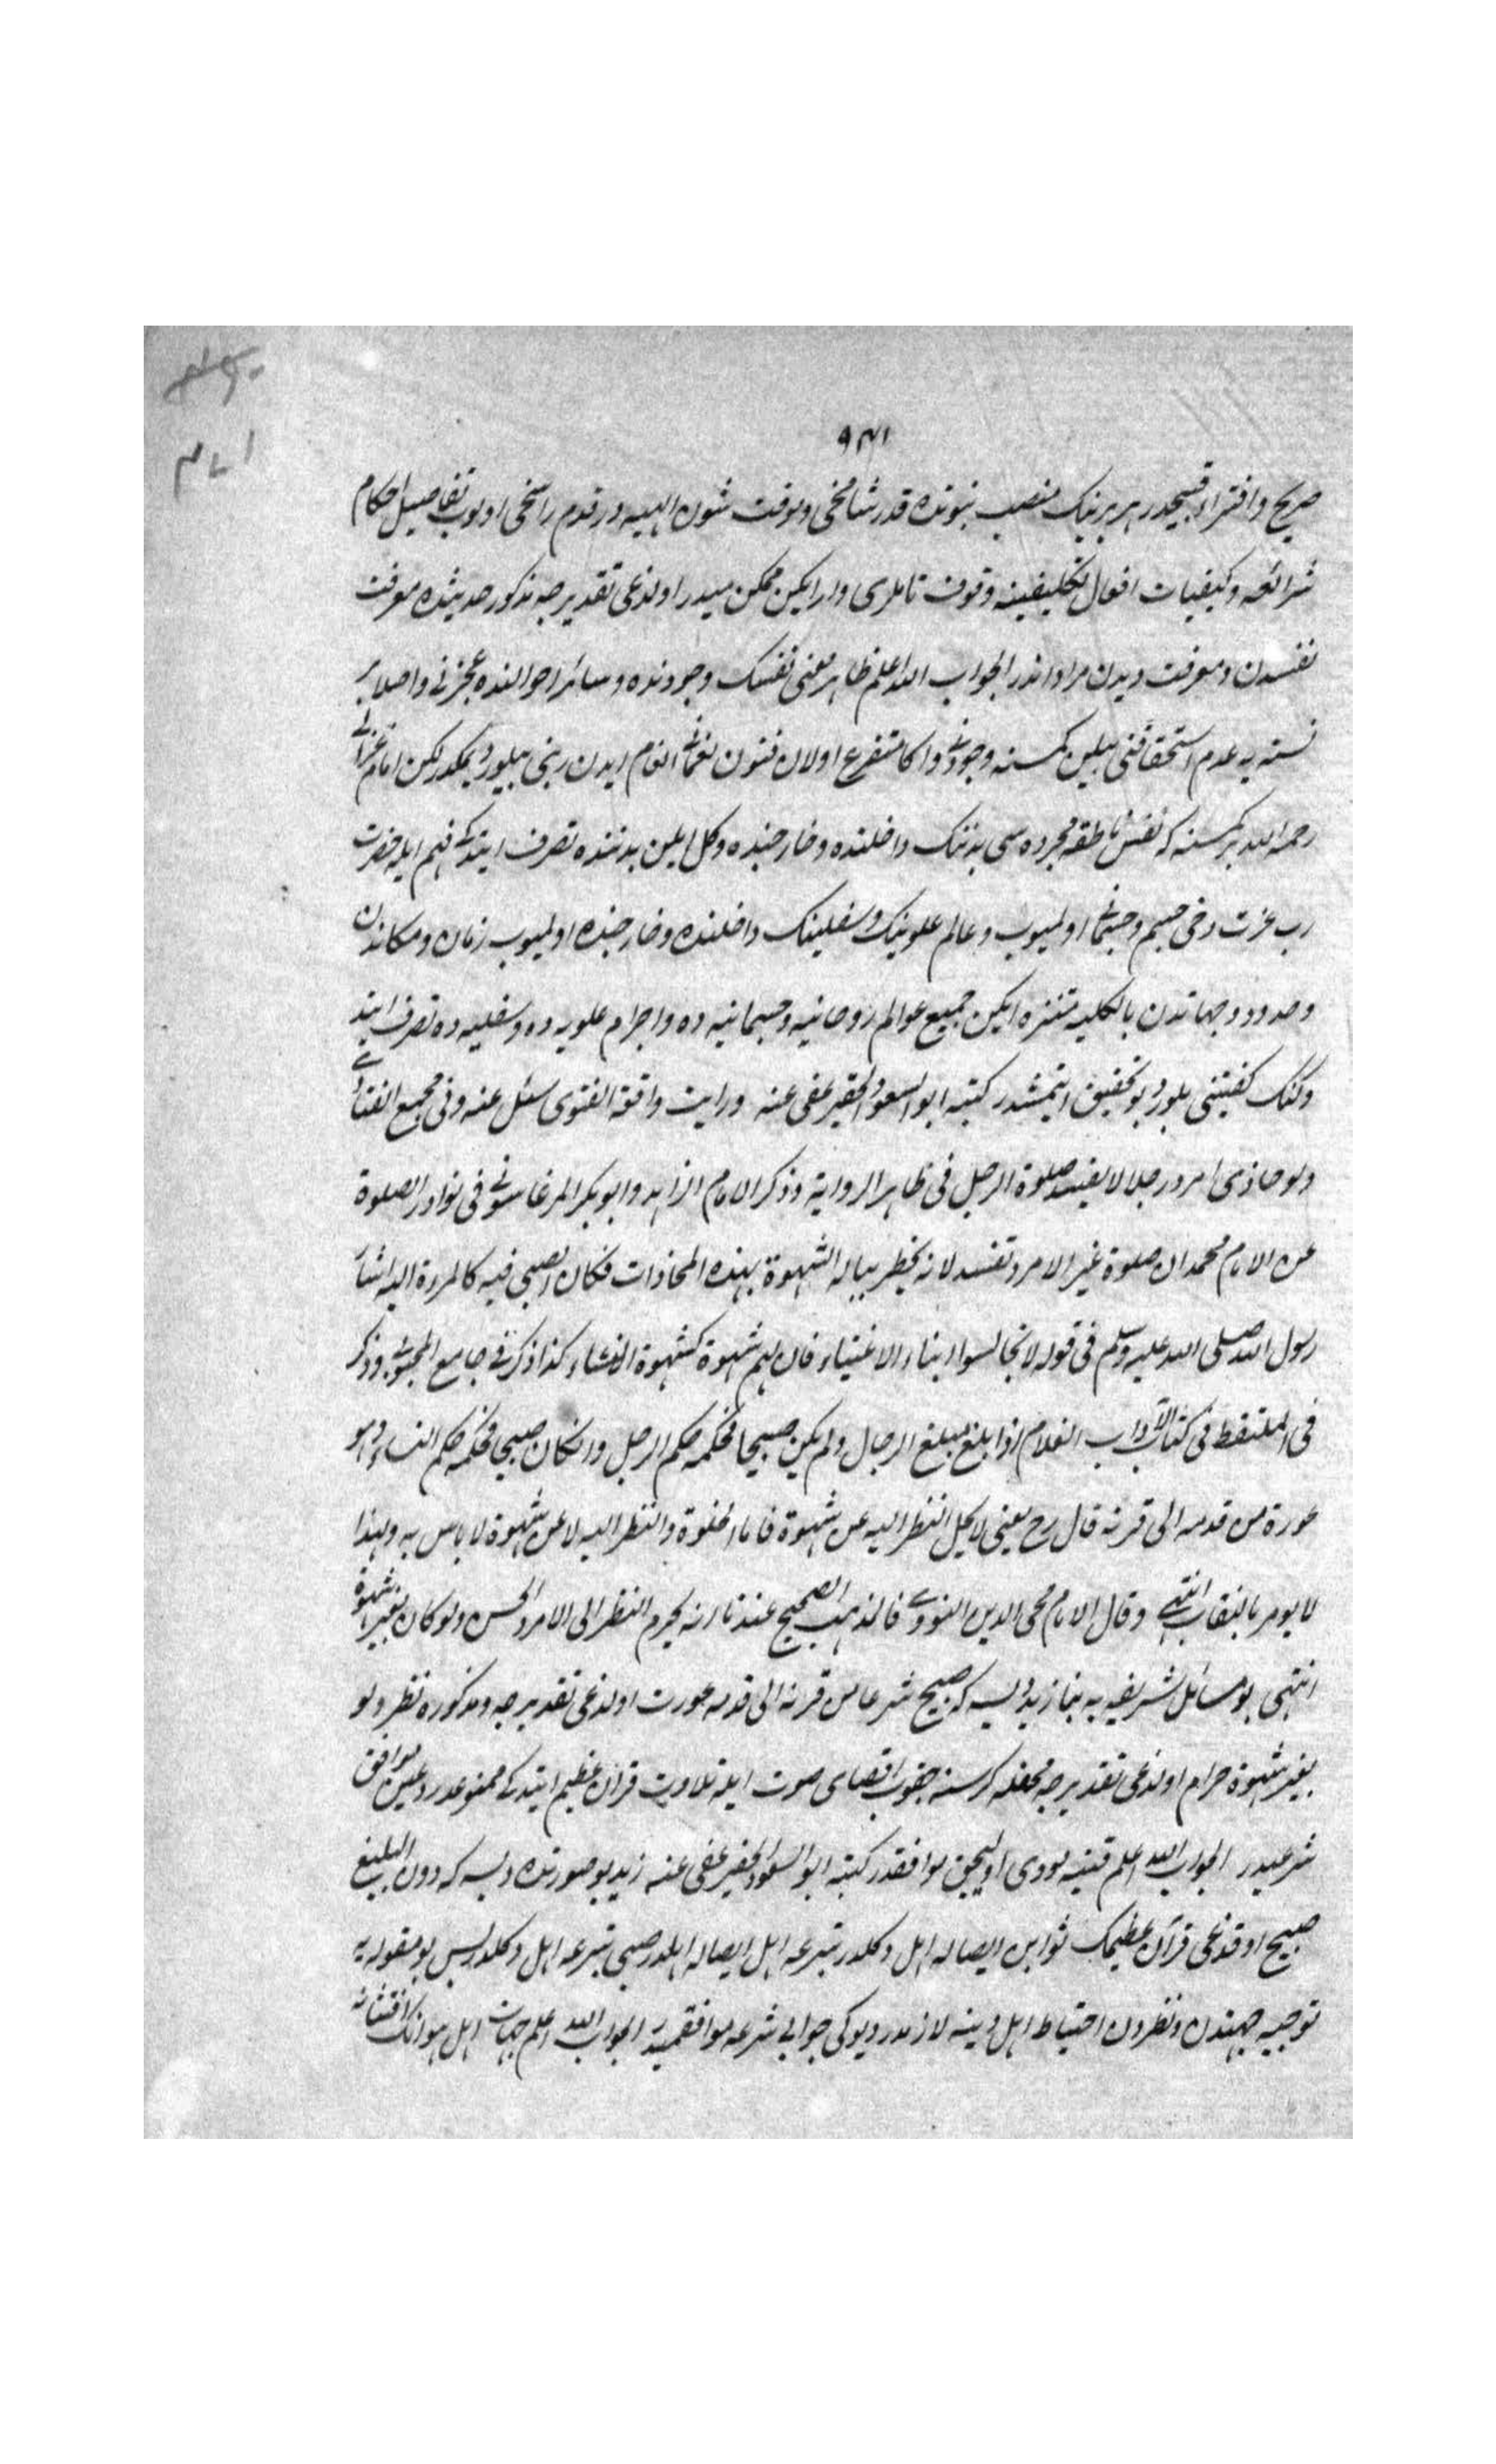 صريح وافتراء قبيحدر هر برينك منصب نبوتده قدر شامخى ومعرفت شئون الهيه در قدم راسخى اولوب تفاصيل احكام
شرائعه وكيفيات افعال تكليفيه وقوف تاملرى وار ايكن ممكن ميدر اولدغى تقديرجه مذكور حديثده معرفت
نفسدن ومعرفت ربدن مراد ندر الجواب الله اعلم ظاهر معنى نفسك وجودنده وسائر احوالنده عجزنى واصلا بر
نسنه يه عدم استحقاقنى بيلين كمسنه وجودى واكا متفرع اولان فنون نعمائى انعام ايدن ربنى بيلور ديمكدر لكن امام غزالى
رحمه الله بر كمسنه كه نفس ناطقه مجرده سى بدننك داخلنده وخارجنده دكل ايكن بدننده تصرف ايتدكى فهم ايله حضرت
رب عزت دخى جسم وجسمانى اولميوب وعالم علوينك وسفلينك داخلنده وخارجنده اولميوب زمان ومكاندن
وحدود وجهاتدن بالكليه متنزه ايكن جميع عوالم روحانيه وجسمانيه ده واجرام علويه ده وسفليه ده تصرف ايتد
وكنك كيفيتنى بلور ديو تحقيق ايتمشدر كتبه ابو السعود الحقير عفى عنه ورايت واقعة الفتوى سئل عنه وفى مجمع الفتاوى
ولو حاذى امرد رجلا لا يفسد صلوة الرجل فى ظاهر الرواية وذكر الامام الزاهد وابو بكر المرغاسونى فى نوادر الصلوة
عن الامام محمد ان صلوة غير الامرد تفسد لانه يخطر بباله الشهوة بهذه المحاذات فكان الصبى فيه كالمرءة اليه اشار
رسول الله صلى الله عليه وسلم فى قوله لا تجالسوا ابناء الاغنياء فان لهم شهوة كشهوة النساء كذا ذكر فى جامع المحبوبى وذكر
فى الملتقط فى كتاب الآداب الغلام اذا بلغ مبلغ الرجال ولم يكن صبيحا فحكمه حكم الرجل وان كان صبيحا فحكمه حكم النساء وهو
عورة من قدمه الى قرنه قال رح يعنى لا يحل النظر اليه عن شهوة فاما الخلوة والنظر اليه لا عن شهوة لا باس به ولهذا
لا يومر بالنقاب انتهى وقال الامام محى الدين النووى فالمذهب الصحيح عندنا انه يحرم النظر الى الامرد الحسن ولو كان بغير شهوة
انتهى بو مسائل شريفه يه بناء زيد ديسه كه صبيح شرعا من قرنه الى قدمه عورت اولدغى تقديرجه ومذكوره نظر ولو
بغير شهوة حرام اولدغى تقديرجه محفله كرسنه چقوب اقصاى صوت ايله تلاوت قرآن عظيم ايتدكى ممنوعدر دعيسى موافق
شرعميدر الجواب الله اعلم فتنه يه مودى اوليجق موافقدر كتبه ابو السعود الحقير عفى عنه زيد بو صورتده ديسه كه دون البلوغ
صبيح اوقدغى قرآن عظيمك ثوابن ايصاله اهل دكلدر تبرعه اهل ايصاله اهلدر صبى تبرعه اهل دكلدر پس بو مقوله يه
توجيه جهتدن ونظردن احتياط اهل دينه لازمدر ديوكى جوابى شرعه موافقميدر الجواب الله اعلم جهات اهل هوانك افتتانه